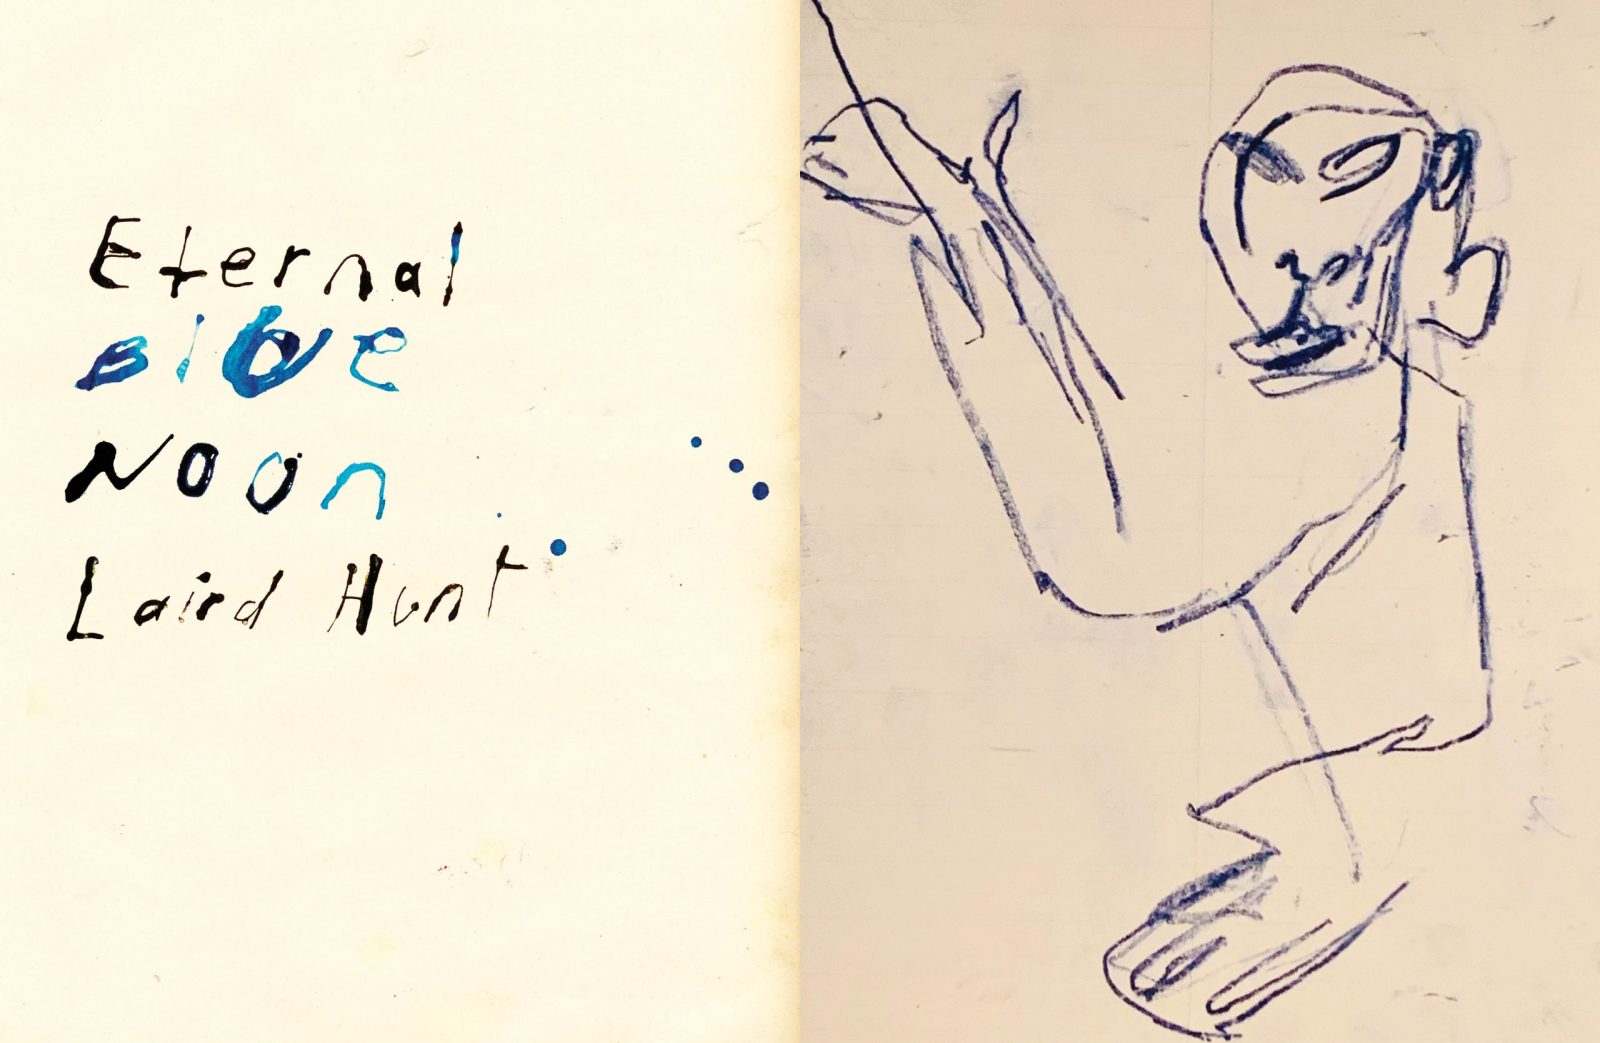 Eternal
Blue
Noon
Laird Hunt